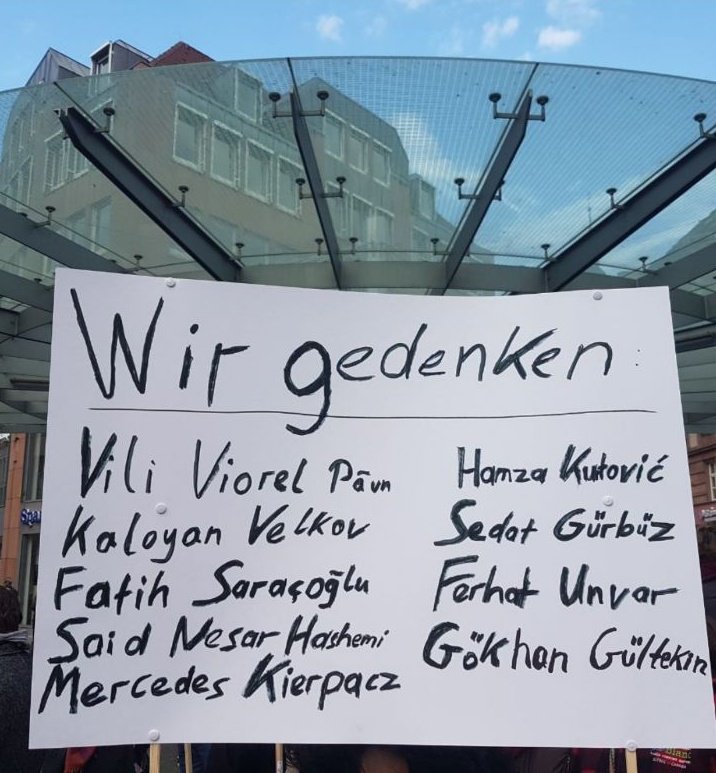 Wir gedenken:
Vili Viorel Pāun
Kaloyan Velkov
Fatih Saraçoğlu
Said Nesar Hashemi
Mercedes Kierpacz
Hamza Kutović
Sedat Gürbüz
Ferhat Unvar
Gökhan Gültekin
Spa